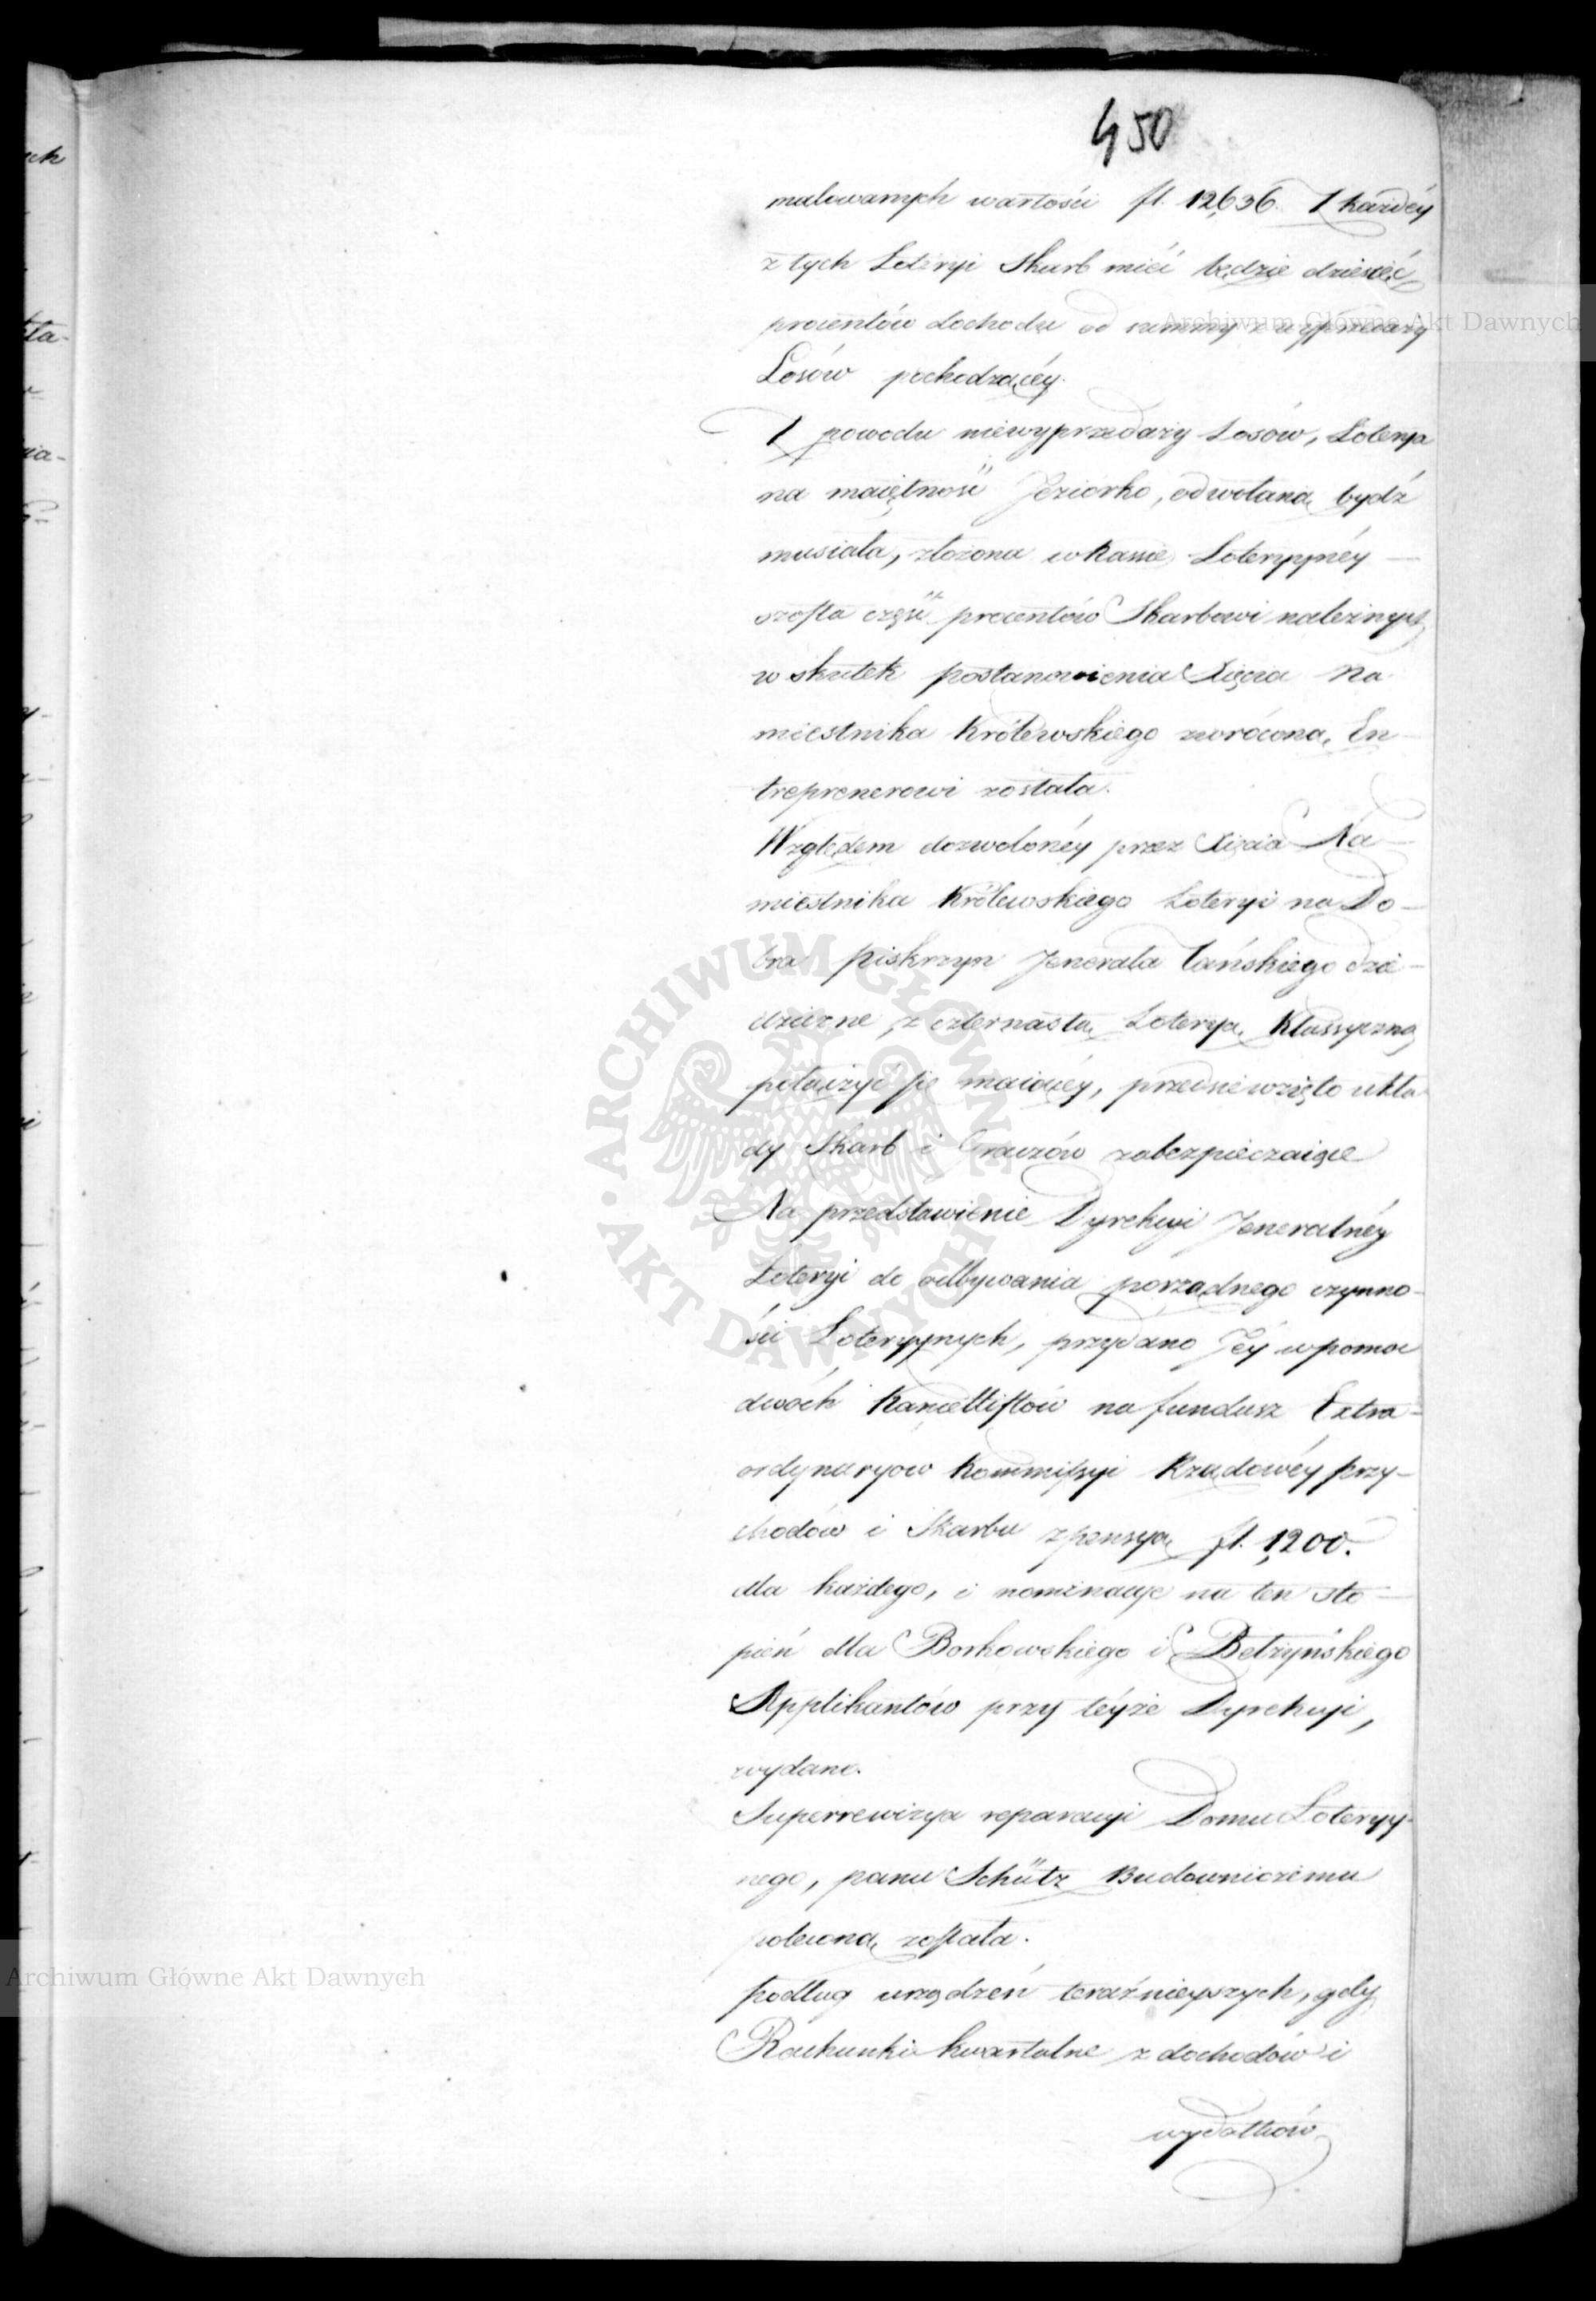 450
malowanych wartości fl. 12,636. Z każdéy
z tych Loteryi Skarb mieć będzie dziesięć
procentów dochodu od summy z wyprzedaży
Losów pochodzącéy.
Z powodu niewyprzedaży Losów, Loterya
na maiętność Jeziorko, odwołaną bydź
musiała, złożona w Kassie Loteryynéy —
szosta część procentów Skarbowi należnych
w skutek postanowienia Xięcia Na
miestnika Królewskiego zwróconą En-
treprenerowi została.
Względem dozwolonéy przez Xięcia Na-
miestnika Królewskiego Loteryi na Do-
bra Piskrzyn Jenerała Łańskiego dzie-
dziczne, z czternastą Loteryą Klassyczną
połączyć się maiącéy, przedsięwzięto ukła
dy Skarb i Graczów zabezpieczaiące
Na przedstawienie Dyrekcyi Jeneralnéy
Loteryi do odbywania porządnego czynno-
ści Loteryynych, przydano Jéy w pomoc
dwóch Kancellistów na fundusz Extra-
ordynaryow Kommissyi Rządowéy przy-
chodów i Skarbu z pensyą fl. 1,200.
dla każdego, i nominacye na ten sto-
pień dla Borkowskiego i Betzyńskiego
Applikantów przy téyże Dyrekcyi,
wydano.
Superrewizya reparacyi Domu Loteryy-
nego, panu Schütz Budowniczemu
poleconą została.
podług urządzeń teraźnieyszych, gdy
Rachunki kwartalne z dochodów i
wydatków
Archiwum Główne Akt Dawnych
Archiwum Główne Akt Dawnych
ARCHIWUM GŁÓWNE AKT DAWNYCH